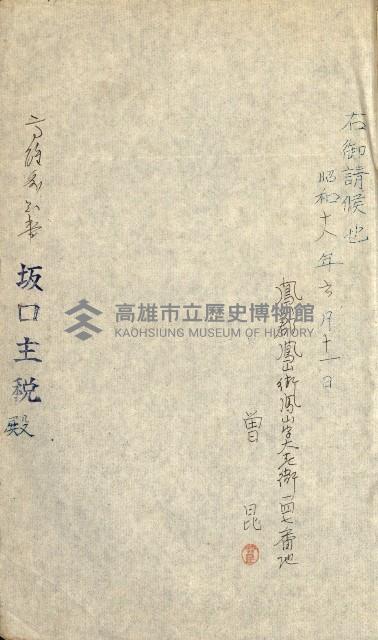 右御請候也
昭和十八年六月十一日
鳳山郡鳳山街鳳山字大老衙一四七番地
曾昆
高雄州知事
坂口主税殿
高雄市立歷史博物館
KAOHSIUNG MUSEUM OF HISTORY